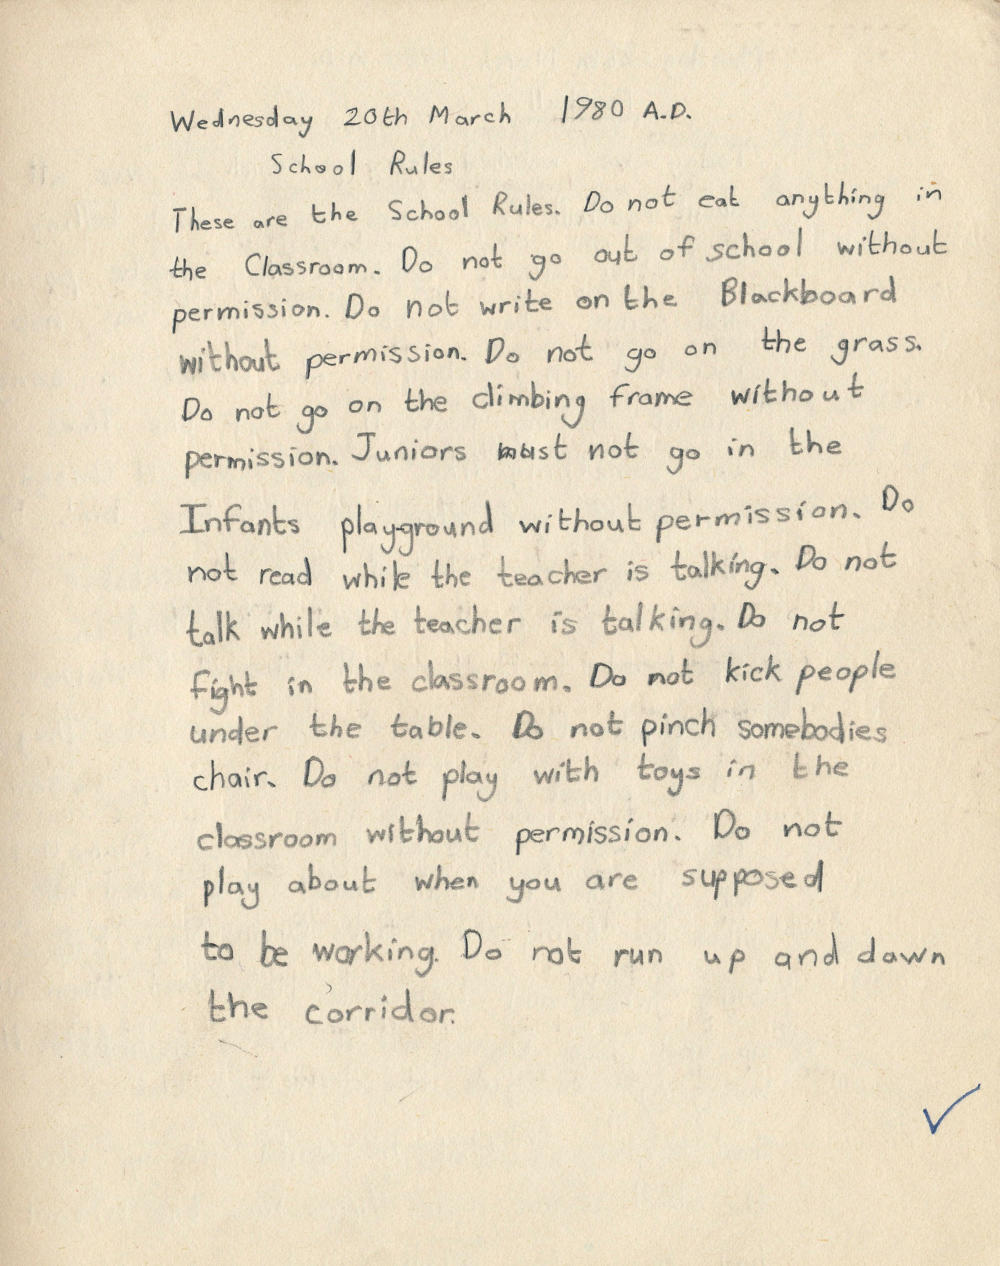 Wednesday 20th March 1980 A.D.
School Rules
These are the School Rules. Do not eat anything in
the Classroom. Do not go out of school without
permission. Do not write on the Blackboard
without permission. Do not go on the grass.
Do not go on the climbing frame without
permission. Juniors must not go in the
Infants playground without permission. Do
not read while the teacher is talking. Do not
talk while the teacher is talking. Do not
fight in the classroom. Do not kick people
under the table. Do not pinch somebodies
chair. Do not play with toys in the
classroom without permission. Do not
play about when you are supposed
to be working. Do not run up and down
the corridor.